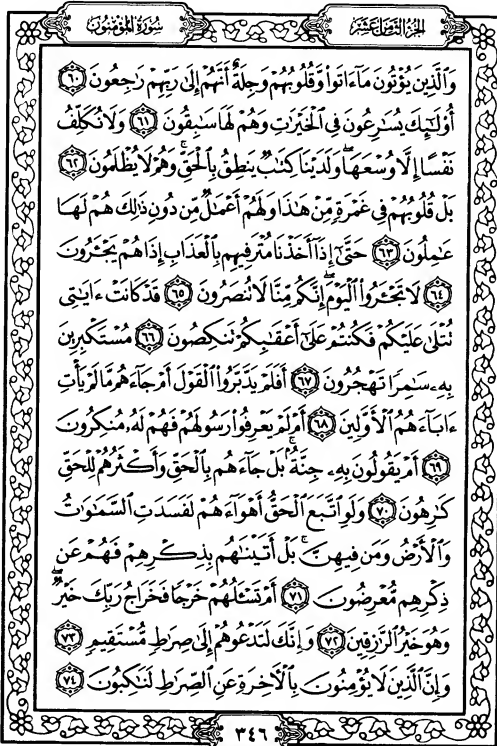 الجزء الثامن عشر
سورة المؤمنون
وَٱلَّذِينَ يُؤْتُونَ مَآ ءَاتَوا۟ وَّقُلُوبُهُمْ وَجِلَةٌ أَنَّهُمْ إِلَىٰ رَبِّهِمْ رَٰجِعُونَ ٦٠
أُو۟لَٰٓئِكَ يُسَٰرِعُونَ فِى ٱلْخَيْرَٰتِ وَهُمْ لَهَا سَٰبِقُونَ ٦١ وَلَا نُكَلِّفُ
نَفْسًا إِلَّا وُسْعَهَا ۖ وَلَدَيْنَا كِتَٰبٌ يَنطِقُ بِٱلْحَقِّ ۚ وَهُمْ لَا يُظْلَمُونَ ٦٢
بَلْ قُلُوبُهُمْ فِى غَمْرَةٍ مِّنْ هَٰذَا وَلَهُمْ أَعْمَٰلٌ مِّن دُونِ ذَٰلِكَ هُمْ لَهَا
عَٰمِلُونَ ٦٣ حَتَّىٰٓ إِذَآ أَخَذْنَا مُتْرَفِيهِم بِٱلْعَذَابِ إِذَا هُمْ يَجْـَٔرُونَ
٦٤ لَا تَجْـَٔرُوا۟ ٱلْيَوْمَ ۖ إِنَّكُم مِّنَّا لَا تُنصَرُونَ ٦٥ قَدْ كَانَتْ ءَايَٰتِى
تُتْلَىٰ عَلَيْكُمْ فَكُنتُمْ عَلَىٰٓ أَعْقَٰبِكُمْ تَنكِصُونَ ٦٦ مُسْتَكْبِرِينَ
بِهِۦ سَٰمِرًا تَهْجُرُونَ ٦٧ أَفَلَمْ يَدَّبَّرُوا۟ ٱلْقَوْلَ أَمْ جَآءَهُم مَّا لَمْ يَأْتِ
ءَابَآءَهُمُ ٱلْأَوَّلِينَ ٦٨ أَمْ لَمْ يَعْرِفُوا۟ رَسُولَهُمْ فَهُمْ لَهُۥ مُنكِرُونَ
٦٩ أَمْ يَقُولُونَ بِهِۦ جِنَّةٌۢ ۚ بَلْ جَآءَهُم بِٱلْحَقِّ وَأَكْثَرُهُمْ لِلْحَقِّ
كَٰرِهُونَ ٧٠ وَلَوِ ٱتَّبَعَ ٱلْحَقُّ أَهْوَآءَهُمْ لَفَسَدَتِ ٱلسَّمَٰوَٰتُ
وَٱلْأَرْضُ وَمَن فِيهِنَّ ۚ بَلْ أَتَيْنَٰهُم بِذِكْرِهِمْ فَهُمْ عَن
ذِكْرِهِم مُّعْرِضُونَ ٧١ أَمْ تَسْـَٔلُهُمْ خَرْجًا فَخَرَاجُ رَبِّكَ خَيْرٌ ۖ
وَهُوَ خَيْرُ ٱلرَّٰزِقِينَ ٧٢ وَإِنَّكَ لَتَدْعُوهُمْ إِلَىٰ صِرَٰطٍ مُّسْتَقِيمٍ ٧٣
وَإِنَّ ٱلَّذِينَ لَا يُؤْمِنُونَ بِٱلْءَاخِرَةِ عَنِ ٱلصِّرَٰطِ لَنَٰكِبُونَ ٧٤
٣٤٦